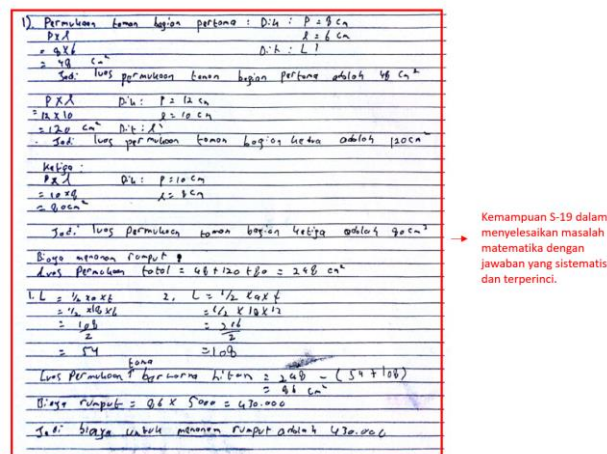 1). Permukaan taman bagian pertama : Dik : P = 8 cm
P x l l = 6 cm
= 8 x 6 Dit : L ?
= 48 cm²
Jadi luas permukaan taman bagian pertama adalah 48 cm²
P x l Dik : P = 12 cm
= 12 x 10 l = 10 cm
= 120 cm² Dit :
Jadi luas permukaan taman bagian kedua adalah 120 cm²
Ketiga :
P x l Dik : P = 10 cm
= 10 x 8 l = 8 cm
= 80 cm²
Jadi luas permukaan taman bagian ketiga adalah 80 cm²
Biaya menanam rumput
Luas Permukaan total = 48 + 120 + 80 = 248 cm²
1. L = 1/2 x a x t 2. L = 1/2 x a x t
= 1/2 x 18 x 6 = 1/2 x 18 x 12
= 108/2 = 216/2
= 54 = 108
Luas Permukaan tama berwarna hitam = 248 - (54 + 108)
= 86 cm²
Biaya rumput = 86 x 5000 = 430.000
Jadi biaya untuk menanam rumput adalah 430.000
Kemampuan S-19 dalam
menyelesaikan masalah
matematika dengan
jawaban yang sistematis
dan terperinci.